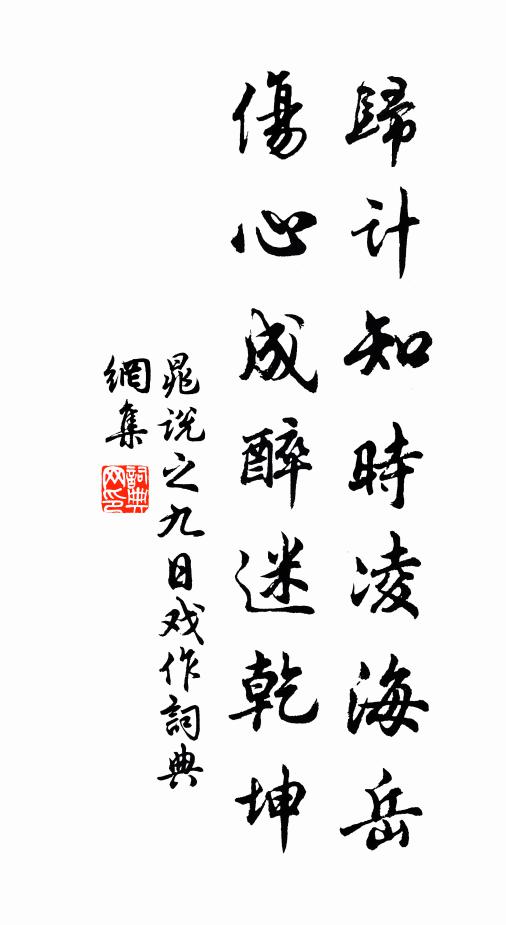 歸计知時凌海岳
傷心成醉迷乾坤
晁说之九日戏作詞典
網集
詞典
网印